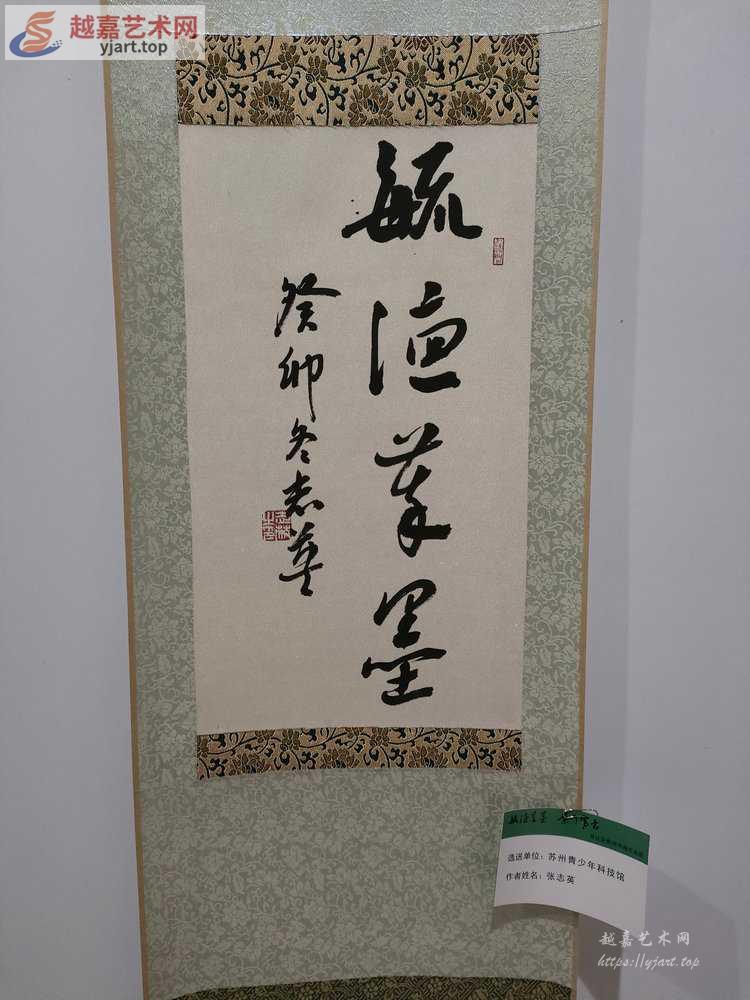 越嘉艺术网
yjart.top
毓德萃墨
癸卯冬志英
毓德萃墨
选送单位：苏州青少年科技馆
作者姓名：张志英
越嘉艺术网
https://yjart.top